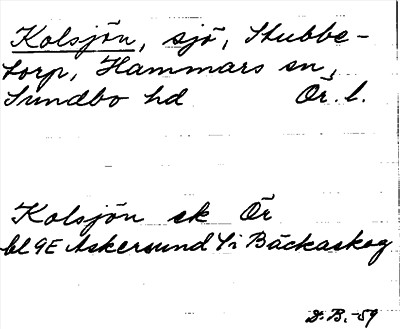 Kolsjön, sjö, Stubbe-
torp, Hammars sn,
Sundbo hd Ör. l.
Kolsjön ek Ör
bl 9E Askersund Si Bäckaskog
D.B.-59